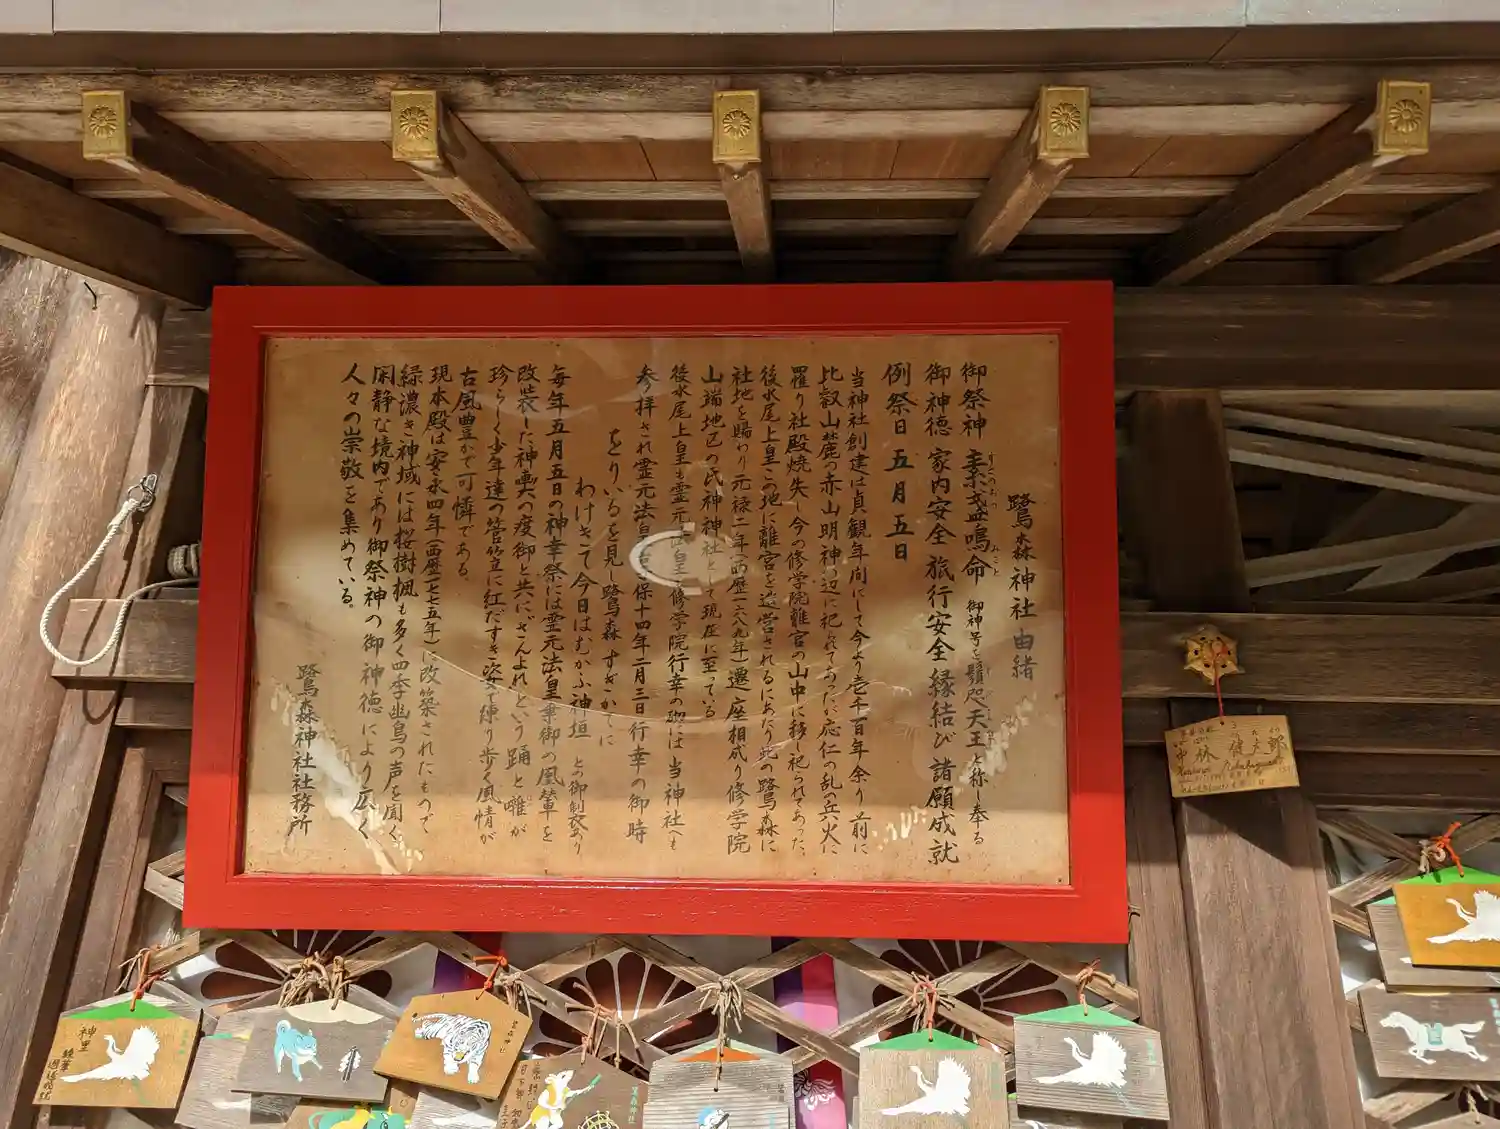 鷺森神社由緒
御祭神 素盞鳴命 御神号を鬚咫天王と称し奉る
すさのおの
みこと
御神徳 家内安全 旅行安全 縁結び 諸願成就
例祭日 五月五日
当神社創建は貞観年間にして今より壱千百年余り前に
比叡山麓の赤山明神の辺に祀られてあったに応仁の乱の兵火に
罹り社殿焼失し今の修学院離宮の山中に移し祀られてあった、
後水尾上皇この地に離宮を造営されるにあたり此の鷺森に
社地を賜わり元禄二年(西歴一六八九年)遷座相成り修学院
山端地区の氏神神社として現在に至っている
後水尾上皇も霊元法皇も修学院行幸の砌には当神社へも
参拝され霊元法皇享保十四年二月三日行幸の御時
をりいるを見し鷺森すぎがてに
わけきて今日はむかふ神垣 との御製あり
毎年五月五日の神幸祭には霊元法皇乗御の鳳輦を
改装した神輿の渡御と共にさんよれという踊と囃が
珍らしく少年達の菅笠に紅だすき姿で練り歩く風情が
古風豊かで可憐である。
現本殿は安永四年(西歴一七七五年)に改築されたもので
緑濃き神域には桜樹楓も多く四季出鳥の声を聞く
閑静な境内であり御祭神の御神徳により広く
人々の崇敬を集めている。
鷺森神社社務所